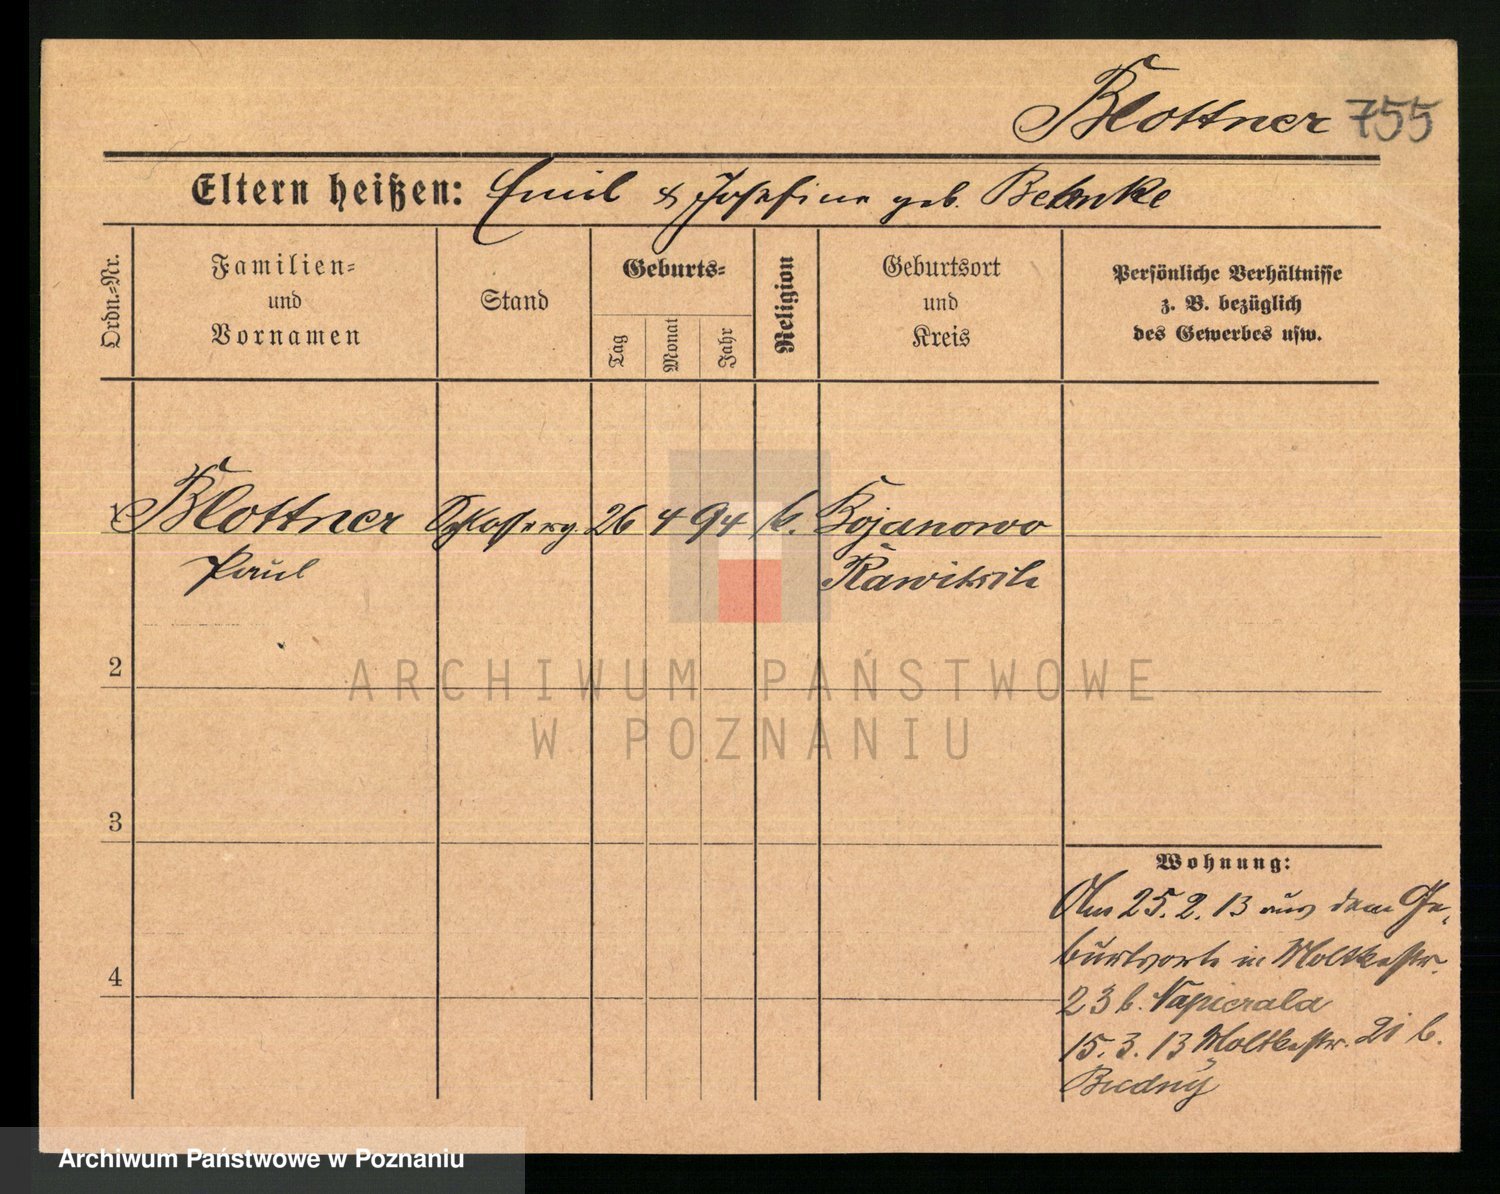 Blottner 755
Eltern heißen: Emil & Josefine geb. Behnke
Ordn.-Nr.
Familien-
und
Vornamen
Stand
Geburts-
Tag
Monat
Jahr
Religion
Geburtsort
und
Kreis
Persönliche Verhältnisse
z. B. bezüglich
des Gewerbes usw.
1 Blottner Schlosserg. 26 4 94 k. Bojanowo
Paul Rawitsch
2
ARCHIWUM PAŃSTWOWE
W POZNANIU
3
Wohnung:
Am 25.2.13 aus dem Ge-
burtsorte in Moltkestr.
4
23 b. Napierala
15.3.13 Moltkestr. 21 b.
Budny
Archiwum Państwowe w Poznaniu